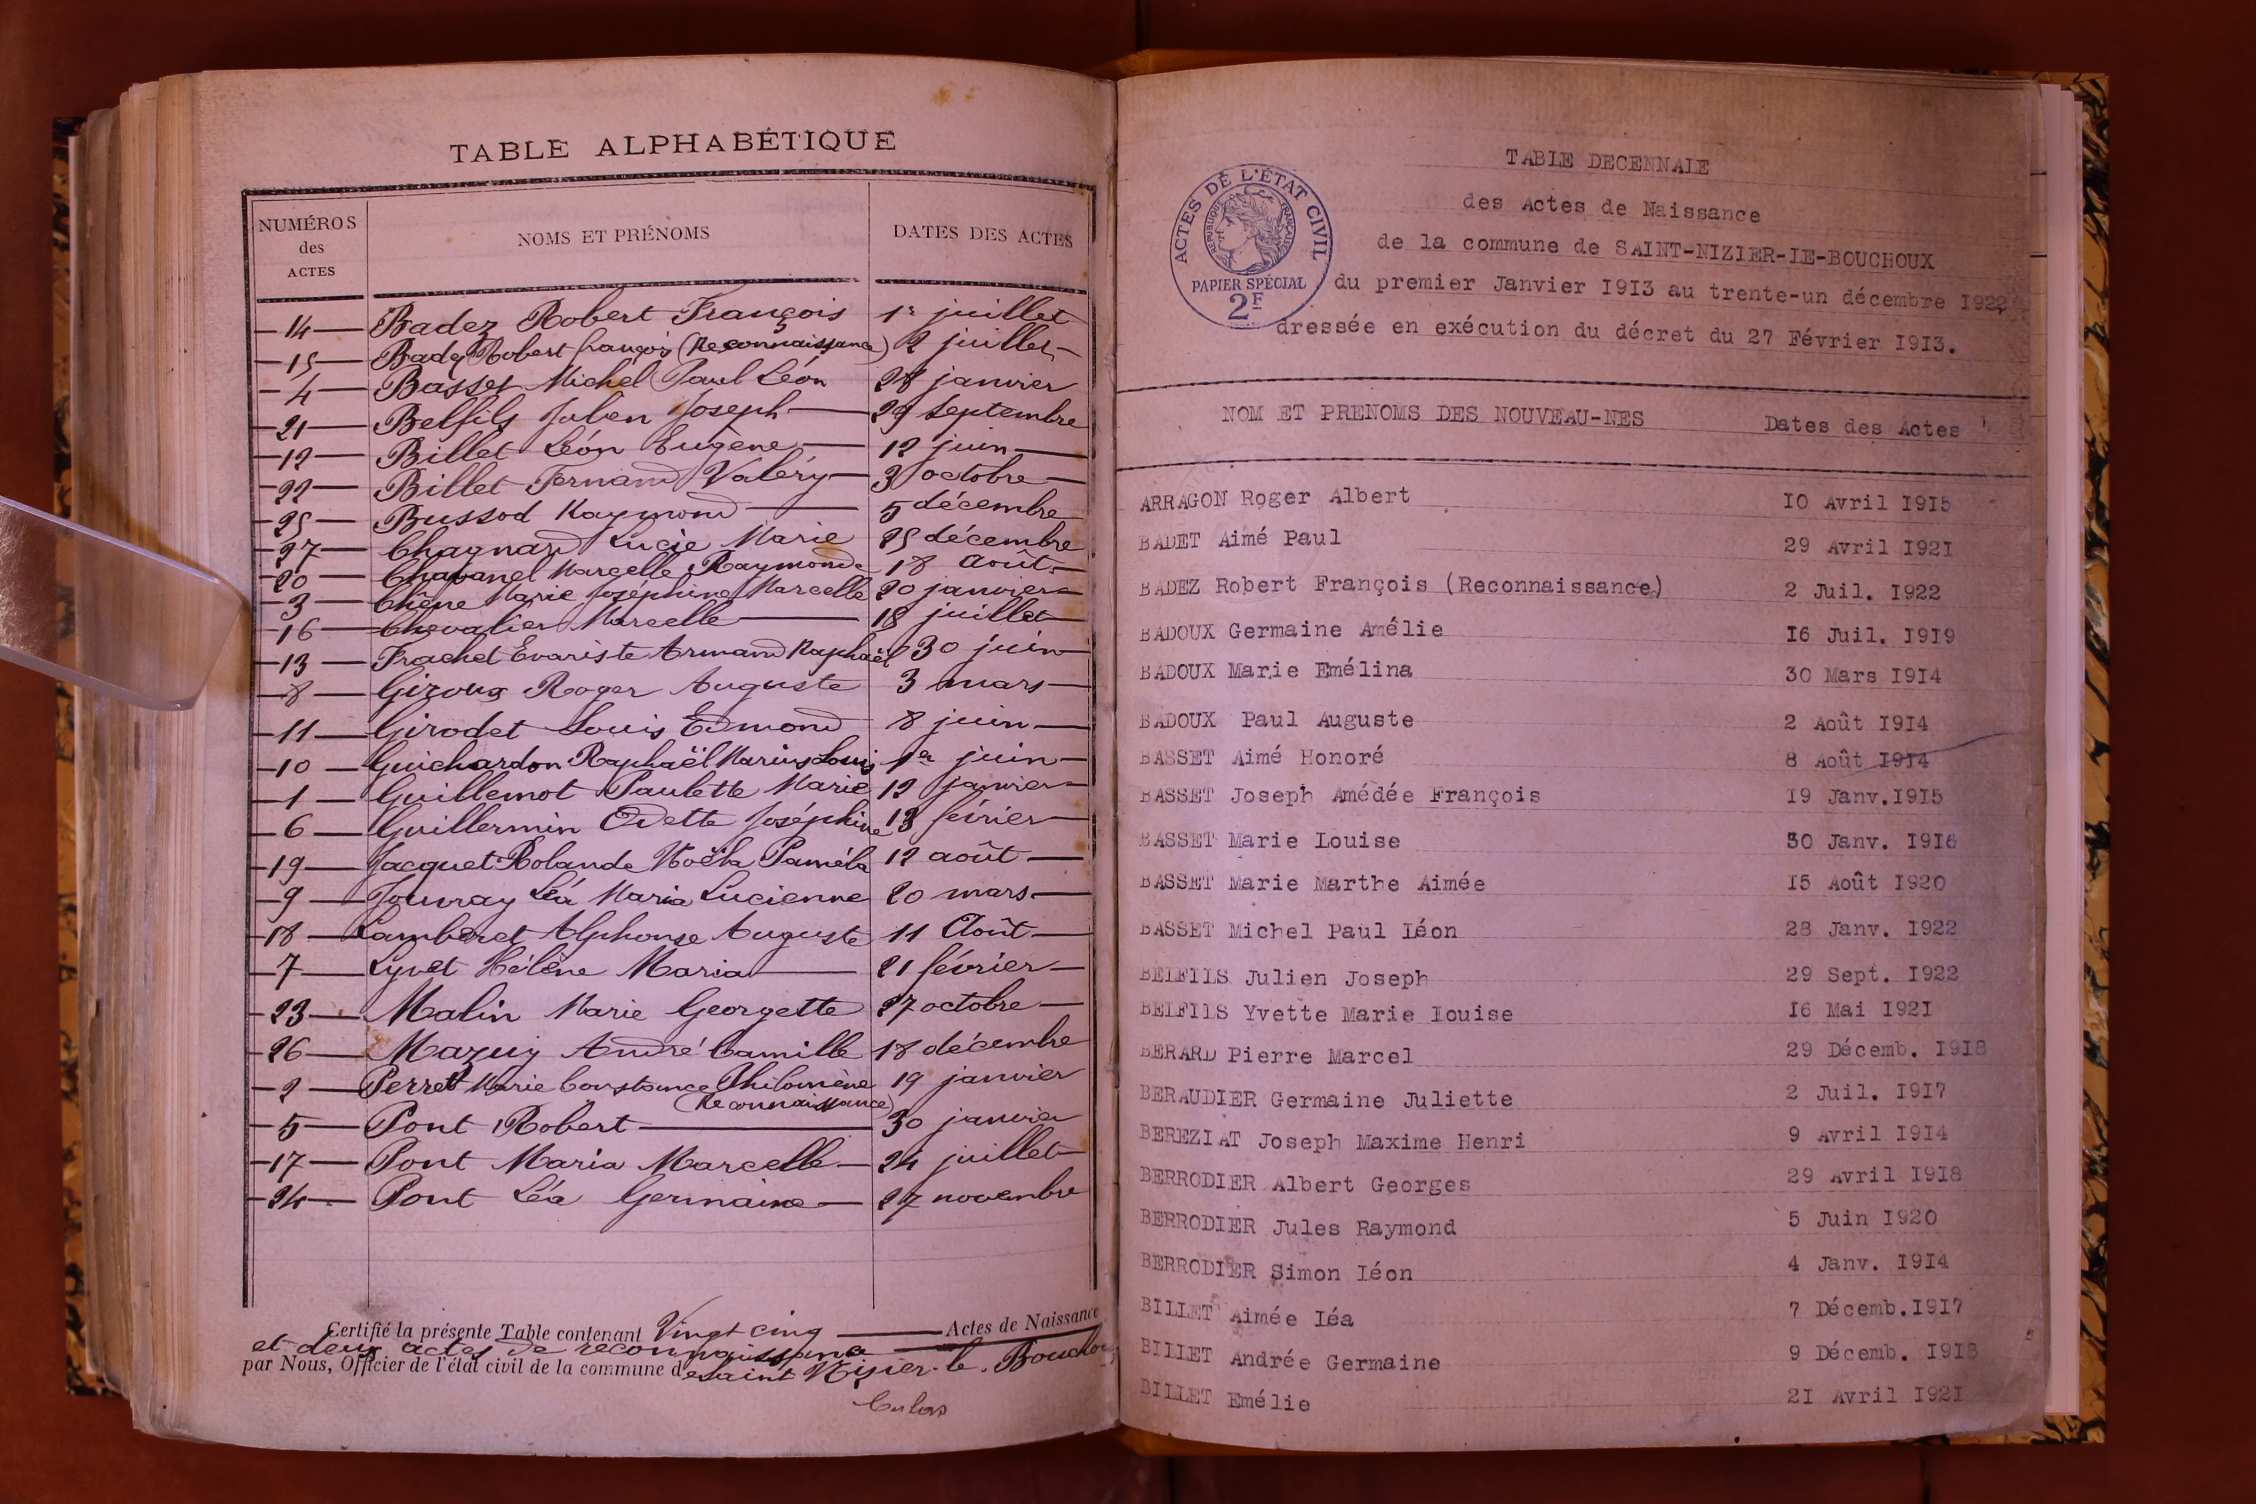 TABLE ALPHABÉTIQUE
NUMÉROS des ACTES
NOMS ET PRÉNOMS
DATES DES ACTES
14 Badez Robert François 1er juillet
15 Badez Robert françois (Reconnaissance) 2 juillet
4 Basset Michel Paul Léon 28 janvier
21 Belfils Julien Joseph 29 septembre
12 Billet Léon Eugène 12 juin
22 Billet Fernand Valéry 3 octobre
25 Bussod Raymond 5 décembre
27 Chagnard Lucie Marie 25 décembre
20 Chavanel Marcelle Raymonde 18 août
3 Chêne Marie Joséphine Marcelle 20 janvier
16 Chevalier Marcelle 18 juillet
13 Frachet Evariste Armand Raphaël 30 juin
8 Giroux Roger Auguste 3 mars
11 Girodet Louis Edmond 8 juin
10 Guichardon Raphaël Marius Louis 1er juin
1 Guillemot Paulette Marie 12 janvier
6 Guillermin Odette Joséphine 13 février
19 Jacquet Rolande Noëla Paméla 12 août
9 Jouvray Léa Maria Lucienne 20 mars
18 Lamberet Alphonse Auguste 11 Août
7 Lyvet Hélène Maria 21 février
23 Malin Marie Georgette 27 octobre
26 Mazuy André Camille 18 décembre
2 Perret Marie Constance Philomène 19 janvier
(Reconnaissance)
5 Pont Robert 30 janvier
17 Pont Maria Marcelle 24 juillet
24 Pont Léa Germaine 27 novembre
Certifié la présente Table contenant Vingt cinq Actes de Naissance
et deux actes de reconnaissance
par Nous, Officier de l'état civil de la commune de Saint Nizier-le-Bouchoux
TABLE DECENNALE
des Actes de Naissance
de la commune de SAINT-NIZIER-LE-BOUCHOUX
du premier Janvier 1913 au trente-un décembre 1922
dressée en exécution du décret du 27 Février 1913.
ACTES DE L'ÉTAT CIVIL
RÉPUBLIQUE FRANÇAISE
PAPIER SPÉCIAL
2F
NOM ET PRENOMS DES NOUVEAU-NES Dates des Actes
ARRAGON Roger Albert 10 Avril 1915
BADET Aimé Paul 29 Avril 1921
BADEZ Robert François (Reconnaissance) 2 Juil. 1922
BADOUX Germaine Amélie 16 Juil. 1919
BADOUX Marie Emélina 30 Mars 1914
BADOUX Paul Auguste 2 Août 1914
BASSET Aimé Honoré 8 Août 1914
BASSET Joseph Amédée François 19 Janv.1915
BASSET Marie Louise 30 Janv. 1916
BASSET Marie Marthe Aimée 15 Août 1920
BASSET Michel Paul Léon 28 Janv. 1922
BELFILS Julien Joseph 29 Sept. 1922
BELFILS Yvette Marie Louise 16 Mai 1921
BERARD Pierre Marcel 29 Décemb. 1918
BERAUDIER Germaine Juliette 2 Juil. 1917
BEREZIAT Joseph Maxime Henri 9 Avril 1914
BERRODIER Albert Georges 29 Avril 1918
BERRODIER Jules Raymond 5 Juin 1920
BERRODIER Simon Léon 4 Janv. 1914
BILLET Aimée Léa 7 Décemb.1917
BILLET Andrée Germaine 9 Décemb. 1918
BILLET Emélie 21 Avril 1921